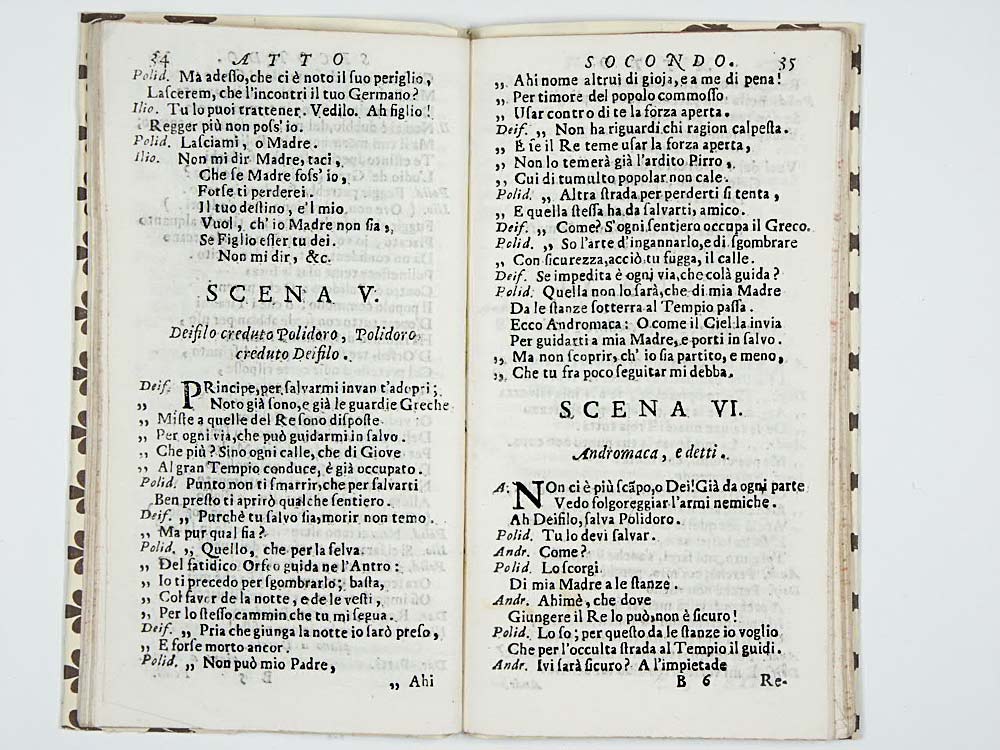 34 ATTO
Polid. Ma adeſſo, che ci è noto il ſuo periglio,
Laſcerem, che l'incontri il tuo Germano?
Ilio. Tu lo puoi trattener. Vedilo. Ah figlio!
Regger più non poſs' io.
Polid. Laſciami, o Madre.
Ilio. Non mi dir Madre, taci,
Che ſe Madre foſs' io,
Forſe ti perderei.
Il tuo deſtino, e'l mio
Vuol, ch' io Madre non ſia,
Se Figlio eſſer tu dei.
Non mi dir, &c.
SCENA V.
Deifilo creduto Polidoro, Polidoro
creduto Deifilo.
Deif. PRincipe, per ſalvarmi invan t'adopri;
„ Noto già ſono, e già le guardie Greche
„ Miſte a quelle del Re ſono diſpoſte
„ Per ogni via, che può guidarmi in ſalvo.
„ Che più? Sino ogni calle, che di Giove
„ Al gran Tempio conduce, è già occupato.
Polid. Punto non ti ſmarrir, che per ſalvarti
Ben preſto ti aprirò qualche ſentiero.
Deif. „ Purchè tu ſalvo ſia, morir non temo.
„ Ma pur qual ſia?
Polid. „ Quello, che per la ſelva
„ Del fatidico Orfeo guida ne l'Antro:
„ Io ti precedo per ſgombrarlo; baſta,
„ Col favor de la notte, e de le veſti,
„ Per lo ſteſſo cammin che tu mi ſegua.
Deif. „ Pria che giunga la notte io ſarò preſo,
„ E forſe morto ancor.
Polid. „ Non può mio Padre,
„ Ahi
SOCONDO. 35
„ Ahi nome altrui di gioja, e a me di pena!
„ Per timore del popolo commoſſo
„ Uſar contro di te la forza aperta.
Deif. „ Non ha riguardi chi ragion calpeſta.
„ E ſe il Re teme uſar la forza aperta,
„ Non lo temerà già l'ardito Pirro,
„ Cui di tumulto popolar non cale.
Polid. „ Altra ſtrada per perderti ſi tenta,
„ E quella ſteſſa ha da ſalvarti, amico.
Deif. „ Come? S'ogni ſentiero occupa il Greco.
Polid. „ So l'arte d'ingannarlo, e di ſgombrare
„ Con ſicurezza, acciò tu fugga, il calle.
Deif. Se impedita è ogni via, che colà guida?
Polid. Quella non lo ſarà, che di mia Madre
Da le ſtanze ſotterra al Tempio paſſa.
Ecco Andromaca: O come il Ciel la invia
Per guidarti a mia Madre, e porti in ſalvo.
„ Ma non ſcoprir, ch' io ſia partito, e meno,
„ Che tu fra poco ſeguitar mi debba.
SCENA VI.
Andromaca, e detti.
A. NOn ci è più ſcãpo, o Dei! Già da ogni parte
Vedo folgoreggiar l'armi nemiche.
Ah Deifilo, ſalva Polidoro.
Polid. Tu lo devi ſalvar.
Andr. Come?
Polid. Lo ſcorgi
Di mia Madre a le ſtanze.
Andr. Ahimè, che dove
Giungere il Re lo può, non è ſicuro!
Polid. Lo ſo; per queſto da le ſtanze io voglio
Che per l'occulta ſtrada al Tempio il guidi.
Andr. Ivi ſarà ſicuro? A l'impietade
B 6 Re-